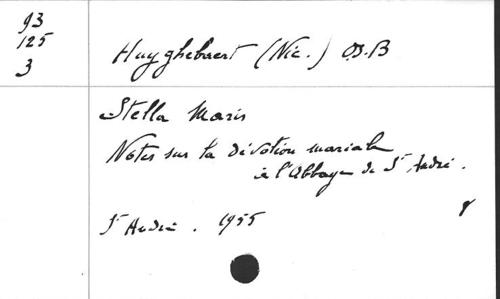 93
125
3
Huyghebaert (Nic.) O.S.B
Stella Maris
Notes sur la dévotion mariale
à l'Abbaye de St André.
St André. 1955
8